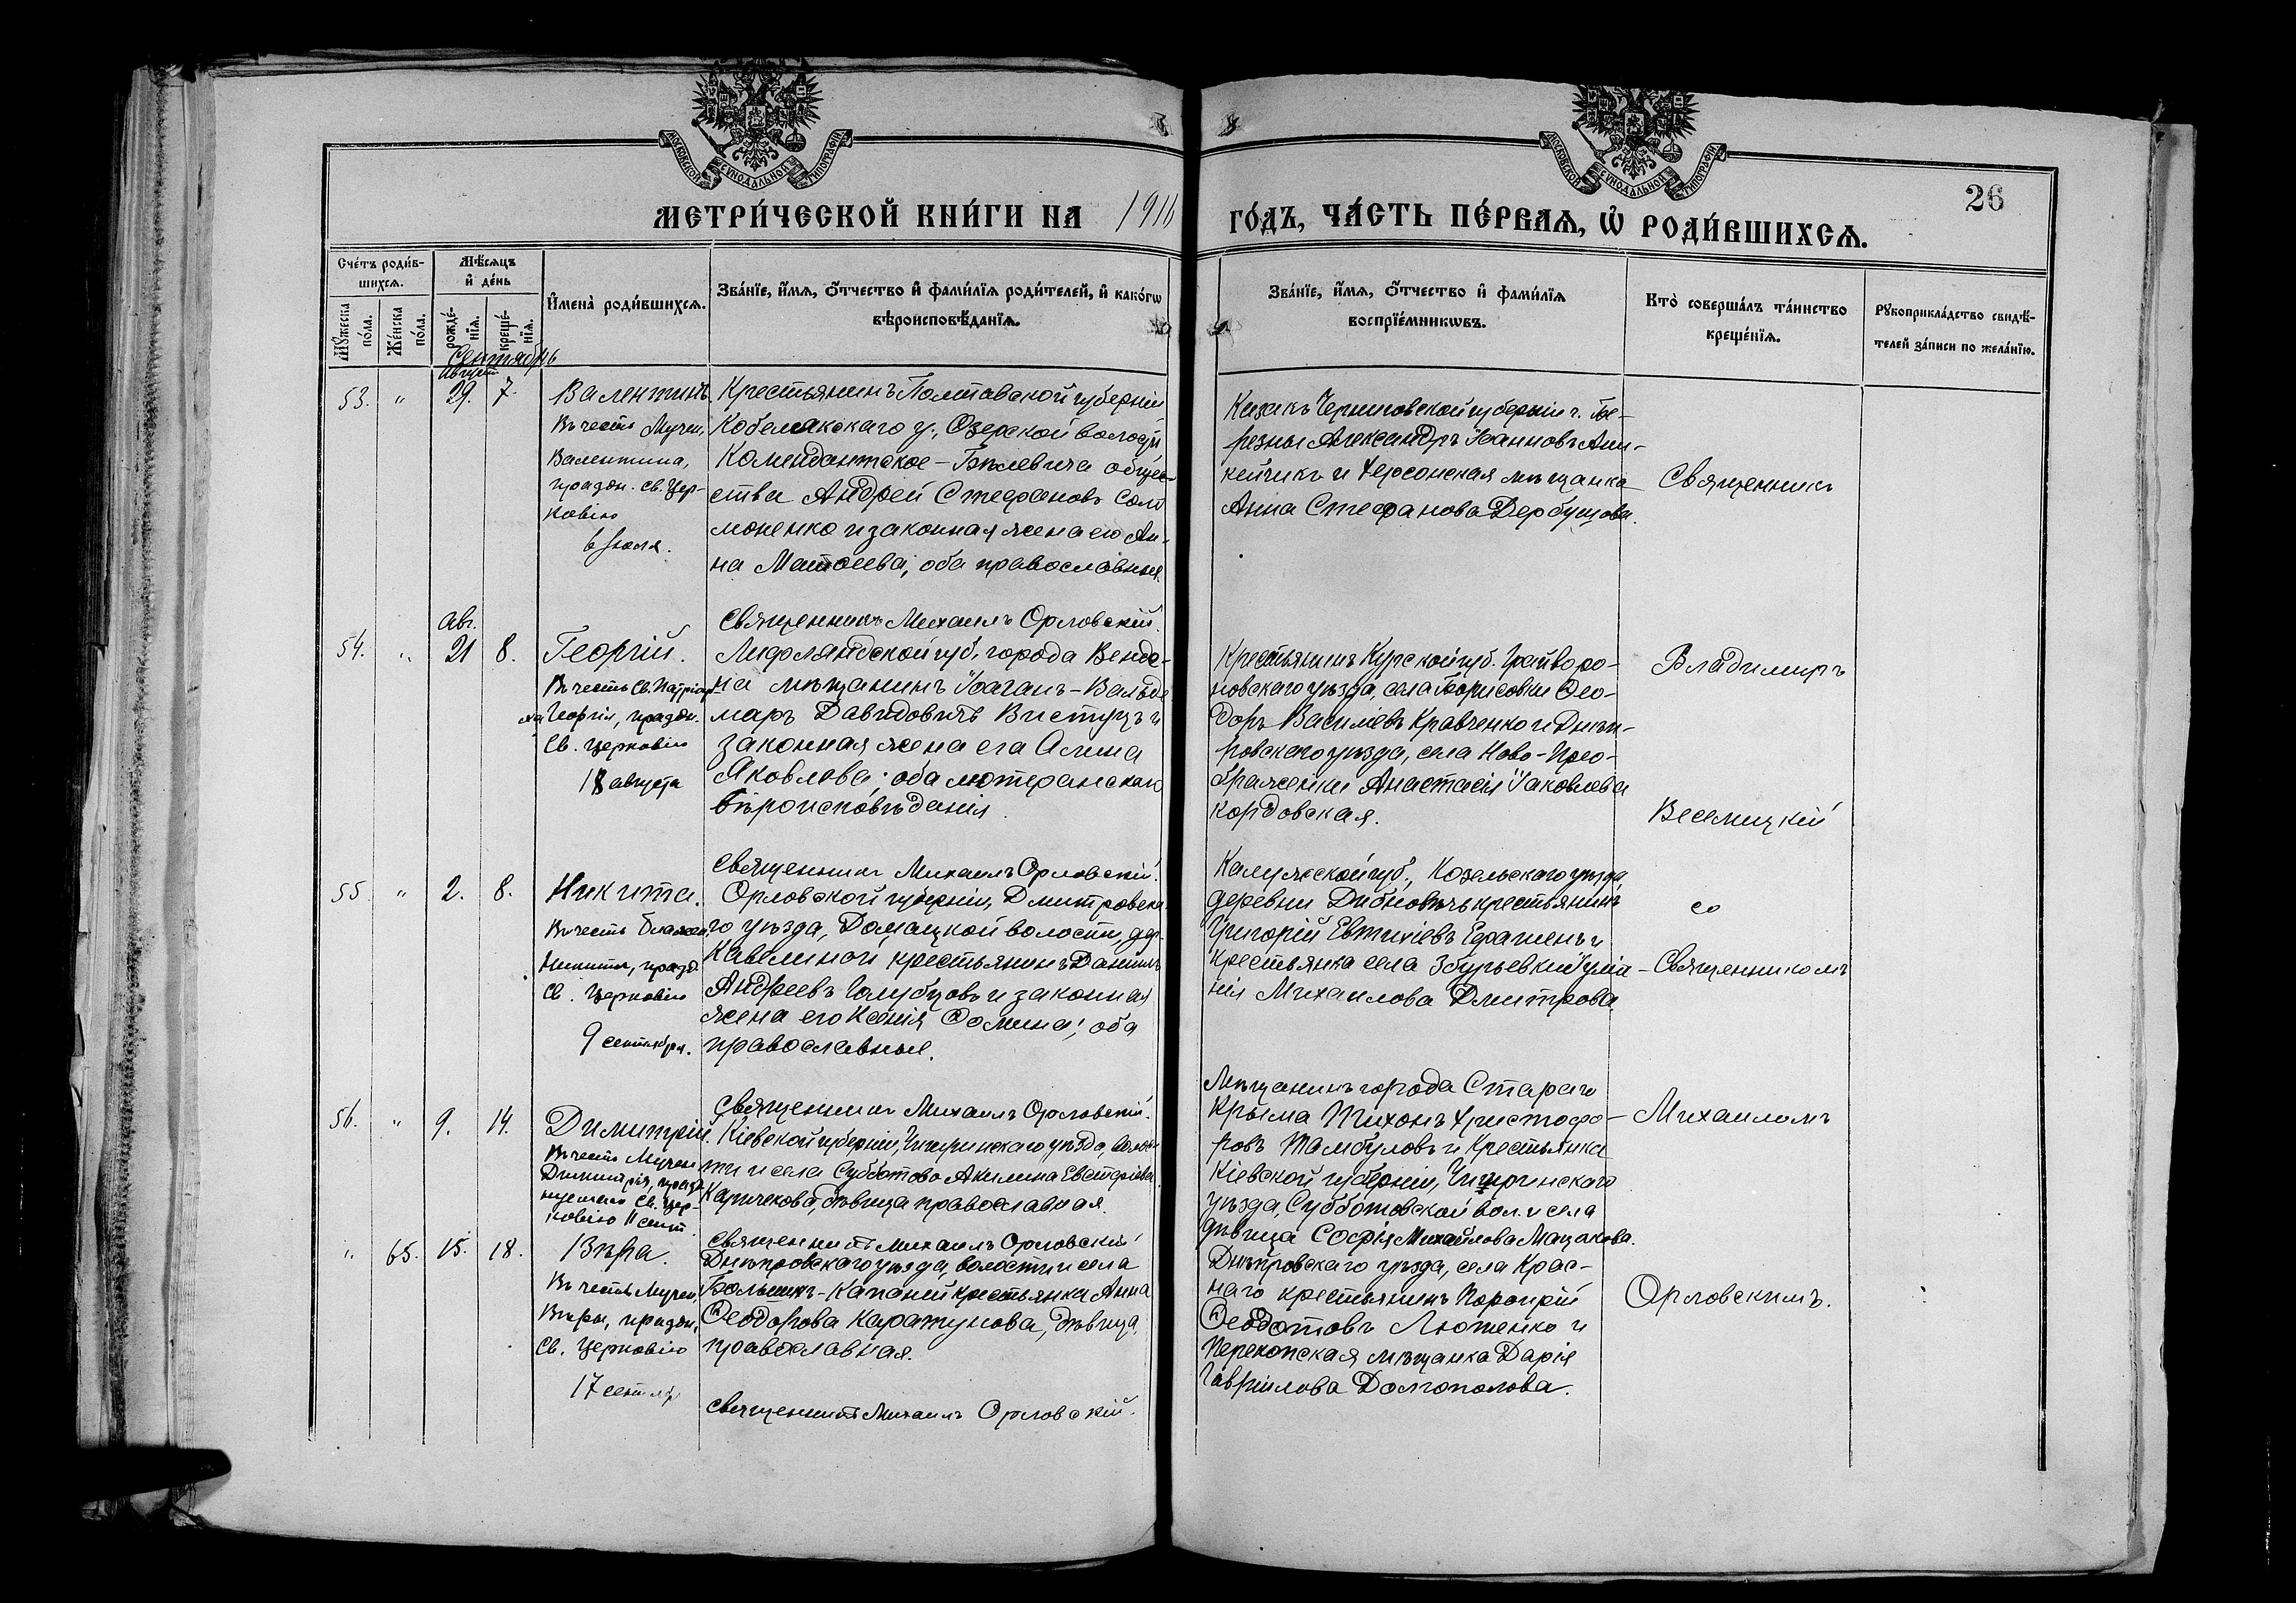 МОСКОВСКОЙ СѴНОДАЛЬНОЙ ТИПОГРАФІИ
МОСКОВСКОЙ СѴНОДАЛЬНОЙ ТИПОГРАФІИ
26
МЕТРИ́ЧЕСКОЙ КНИ́ГИ НА 1916
ГО́ДЪ, ЧА́СТЬ ПЕ́РВАѦ, Ѡ҆ РОДИ́ВШИХСѦ.
Сче́тъ роди́в-
шихсѧ.
Мꙋ́жеска по́ла.
Же́нска по́ла.
Мѣ́сѧцъ
и҆ де́нь
рожде́-
нїѧ.
креще́-
нїѧ.
И҆мена̀ роди́вшихсѧ.
Зва́нїе, и҆́мѧ, ѻ҆́тчество и҆ фами́лїѧ роди́телей, и҆ како́гѡ
вѣроисповѣ́данїѧ.
Зва́нїе, и҆́мѧ, ѻ҆́тчество и҆ фами́лїѧ
воспрїе́мникѡвъ.
Кто̀ соверша́лъ та́инство
креще́нїѧ.
Рꙋкоприкла́дство свидѣ́-
телей за́писи по жела́нїю.
Сентябрь
Август
53. " 29. 7.
Валентинъ.
Въ честь Мучен.
Валентина,
праздн. св. Цер-
ковію
6 Іюля.
Крестьянинъ Полтавской губерніи
Кобелякскаго у., Озерской волости
Комендантское-Бѣлевича общес-
тва Андрей Стефановъ Соло
моненко и законная жена его Ан-
на Матѳеева, оба православные.
Священникъ Михаилъ Орловскій.
Казакъ Черниговской губерніи г. Бе-
резны Александръ Іоанновъ Ани-
кейчикъ и Херсонская мѣщанка
Анна Стефанова Дербушова.
Священникъ
Авг.
54. " 21 8.
Георгій.
Въ честь Св. Патріар-
ха Георгія, праздн.
Св. Церковію
18 августа
Лифляндской губ. города Венде-
на мѣщанинъ Іоганъ-Вальде
маръ Давидовичъ Виступъ и
законная жена его Алина
Яковлева; оба лютеранскаго
вѣроисповѣданія.
Священникъ Михаилъ Орловскій.
Крестьянинъ Курской губ. Грайворо-
новскаго уѣзда, села Борисовки Ѳео-
доръ Василіевъ Кравченко и Днѣп-
ровскаго уѣзда, села Ново-Прео-
браженки Анастасія Іаковлева
Кордовская.
Владимиръ
Веселицкій
55. " 2. 8.
Никита.
Въ честь блажен.
Никиты, празд.
Св. Церковію
9 сентября.
Орловской губерніи, Дмитровска-
го уѣзда, Домацкой волости, дер.
Кавелиной крестьянинъ Даніилъ
Андреевъ Голубцовъ и законная
жена его Ксенія Ѳомина; оба
православные.
Священникъ Михаилъ Орловскій.
Калужской губ., Козельскаго уѣзда
деревни крестьянинъ
Григорій Евтихіевъ и
Крестьянка села Збурьевки Іуліа-
нія Михаилова Дмитрова.
со
Священникомъ
56. " 9. 14.
Димитрій.
Въ честь Мучен
Димитрія, празд-
нуемаго Св. Цер-
ковію 11 сент.
Кіевской губерніи, Чигиринскаго уѣзда, волос-
ти и села Субботово Акилина Евстафіева
Каричкова, дѣвица православная.
Священникъ Михаилъ Орловскій
Мѣщанинъ города Стараго
Крыма Тихонъ Христофо-
ровъ Тамбуловъ и Крестьянка
Кіевской губерніи, Чигиринскаго
уѣзда, Субботовской вол. и села
дѣвица Софія Михайлова Мацакова.
Михаиломъ
" 65. 15. 18.
Вѣра.
Въ честь Мучен.
Вѣры, праздн.
Св. Церковію
17 сентяб
Днѣпровскаго уѣзда, волости и села
Большихъ-Капаній крестьянка Анна
Ѳеодорова Каратунова, дѣвица,
православная.
Священникъ Михаилъ Орловскій.
Днѣпровскаго уѣзда, села Крас-
наго крестьянинъ Порфирій
Ѳеодотовъ Люженко и
Перекопская мѣщанка Дарія
Гавріилова Долгополова.
Орловскимъ.